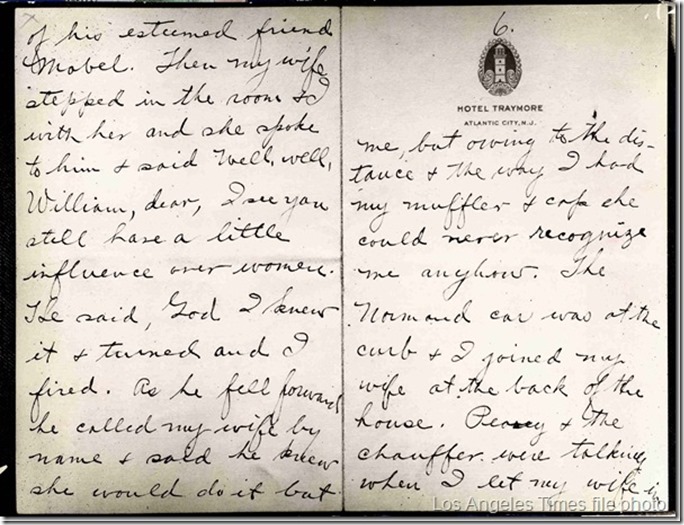 of his esteemed friend
Mabel. Then my wife
stepped in the room & I
with her and she spoke
to him & said Well, well,
William, dear, I see you
still have a little
influence over women.
He said, God I knew
it & turned and I
fired. As he fell forward
he called my wife by
name & said he knew
she would do it but
6.
HOTEL TRAYMORE
ATLANTIC CITY, N.J.
me, but owing to the dis-
tance & the way I had
my muffler & cap she
could never recognize
me anyhow. The
Normand car was at the
curb & I joined my
wife at the back of the
house. Peavey & the
chauffer were talking
when I let my wife in
Los Angeles Times file photo